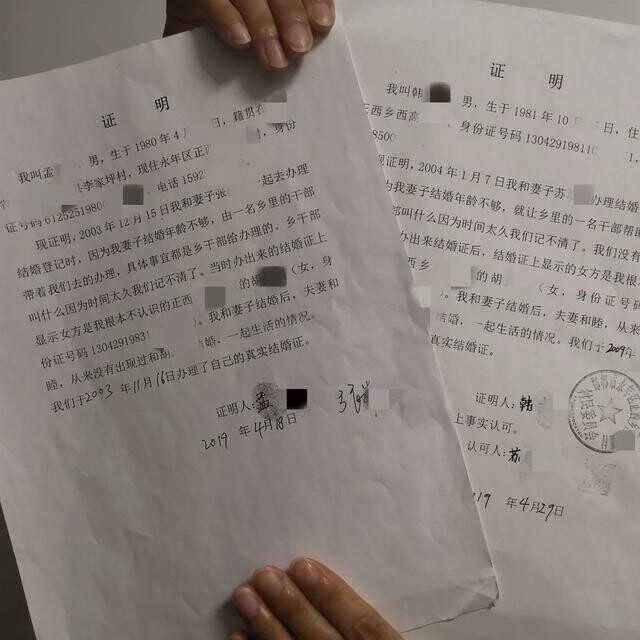 证 明
我叫孟 男，生于1980年4 日，籍贯在
县李家坪村，现住永年区正西 村，身份
证号码6125251980 ，电话1592
现证明，2003年12月15日我和妻子张 一起去办理
结婚登记时，因为我妻子结婚年龄不够，由一名乡里的干部
带着我们去的办理，具体事宜都是乡干部给办理的。乡干部
叫什么因为时间太久我们记不清了。当时办出来的结婚证上
显示女方是我根本不认识的正西 的胡 （女，身
份证号码1304291983 ）。我和妻子结婚后，夫妻和
睦，从来没有出现过和胡 结婚，一起生活的情况。
我们于2003年11月16日办理了自己的真实结婚证。
证明人：孟
2019 年4月18日
证 明
我叫韩 男，生于1981年10 日，住
正西乡西高 ，身份证号码130429198110
8500
现证明，2004年1月7日我和妻子苏 办理结婚
为我妻子结婚年龄不够，就让乡里的一名干部帮
部叫什么因为时间太久我们记不清了。我们没有
办出来结婚证后，结婚证上显示的女方是我根本
西乡 的胡 （女，身份证号码
）。我和妻子结婚后，夫妻和睦，从来
结婚，一起生活的情况。我们于2009年
真实结婚证。
证明人：韩
上事实认可。
认可人：苏
19 年4月29日
村民委员会